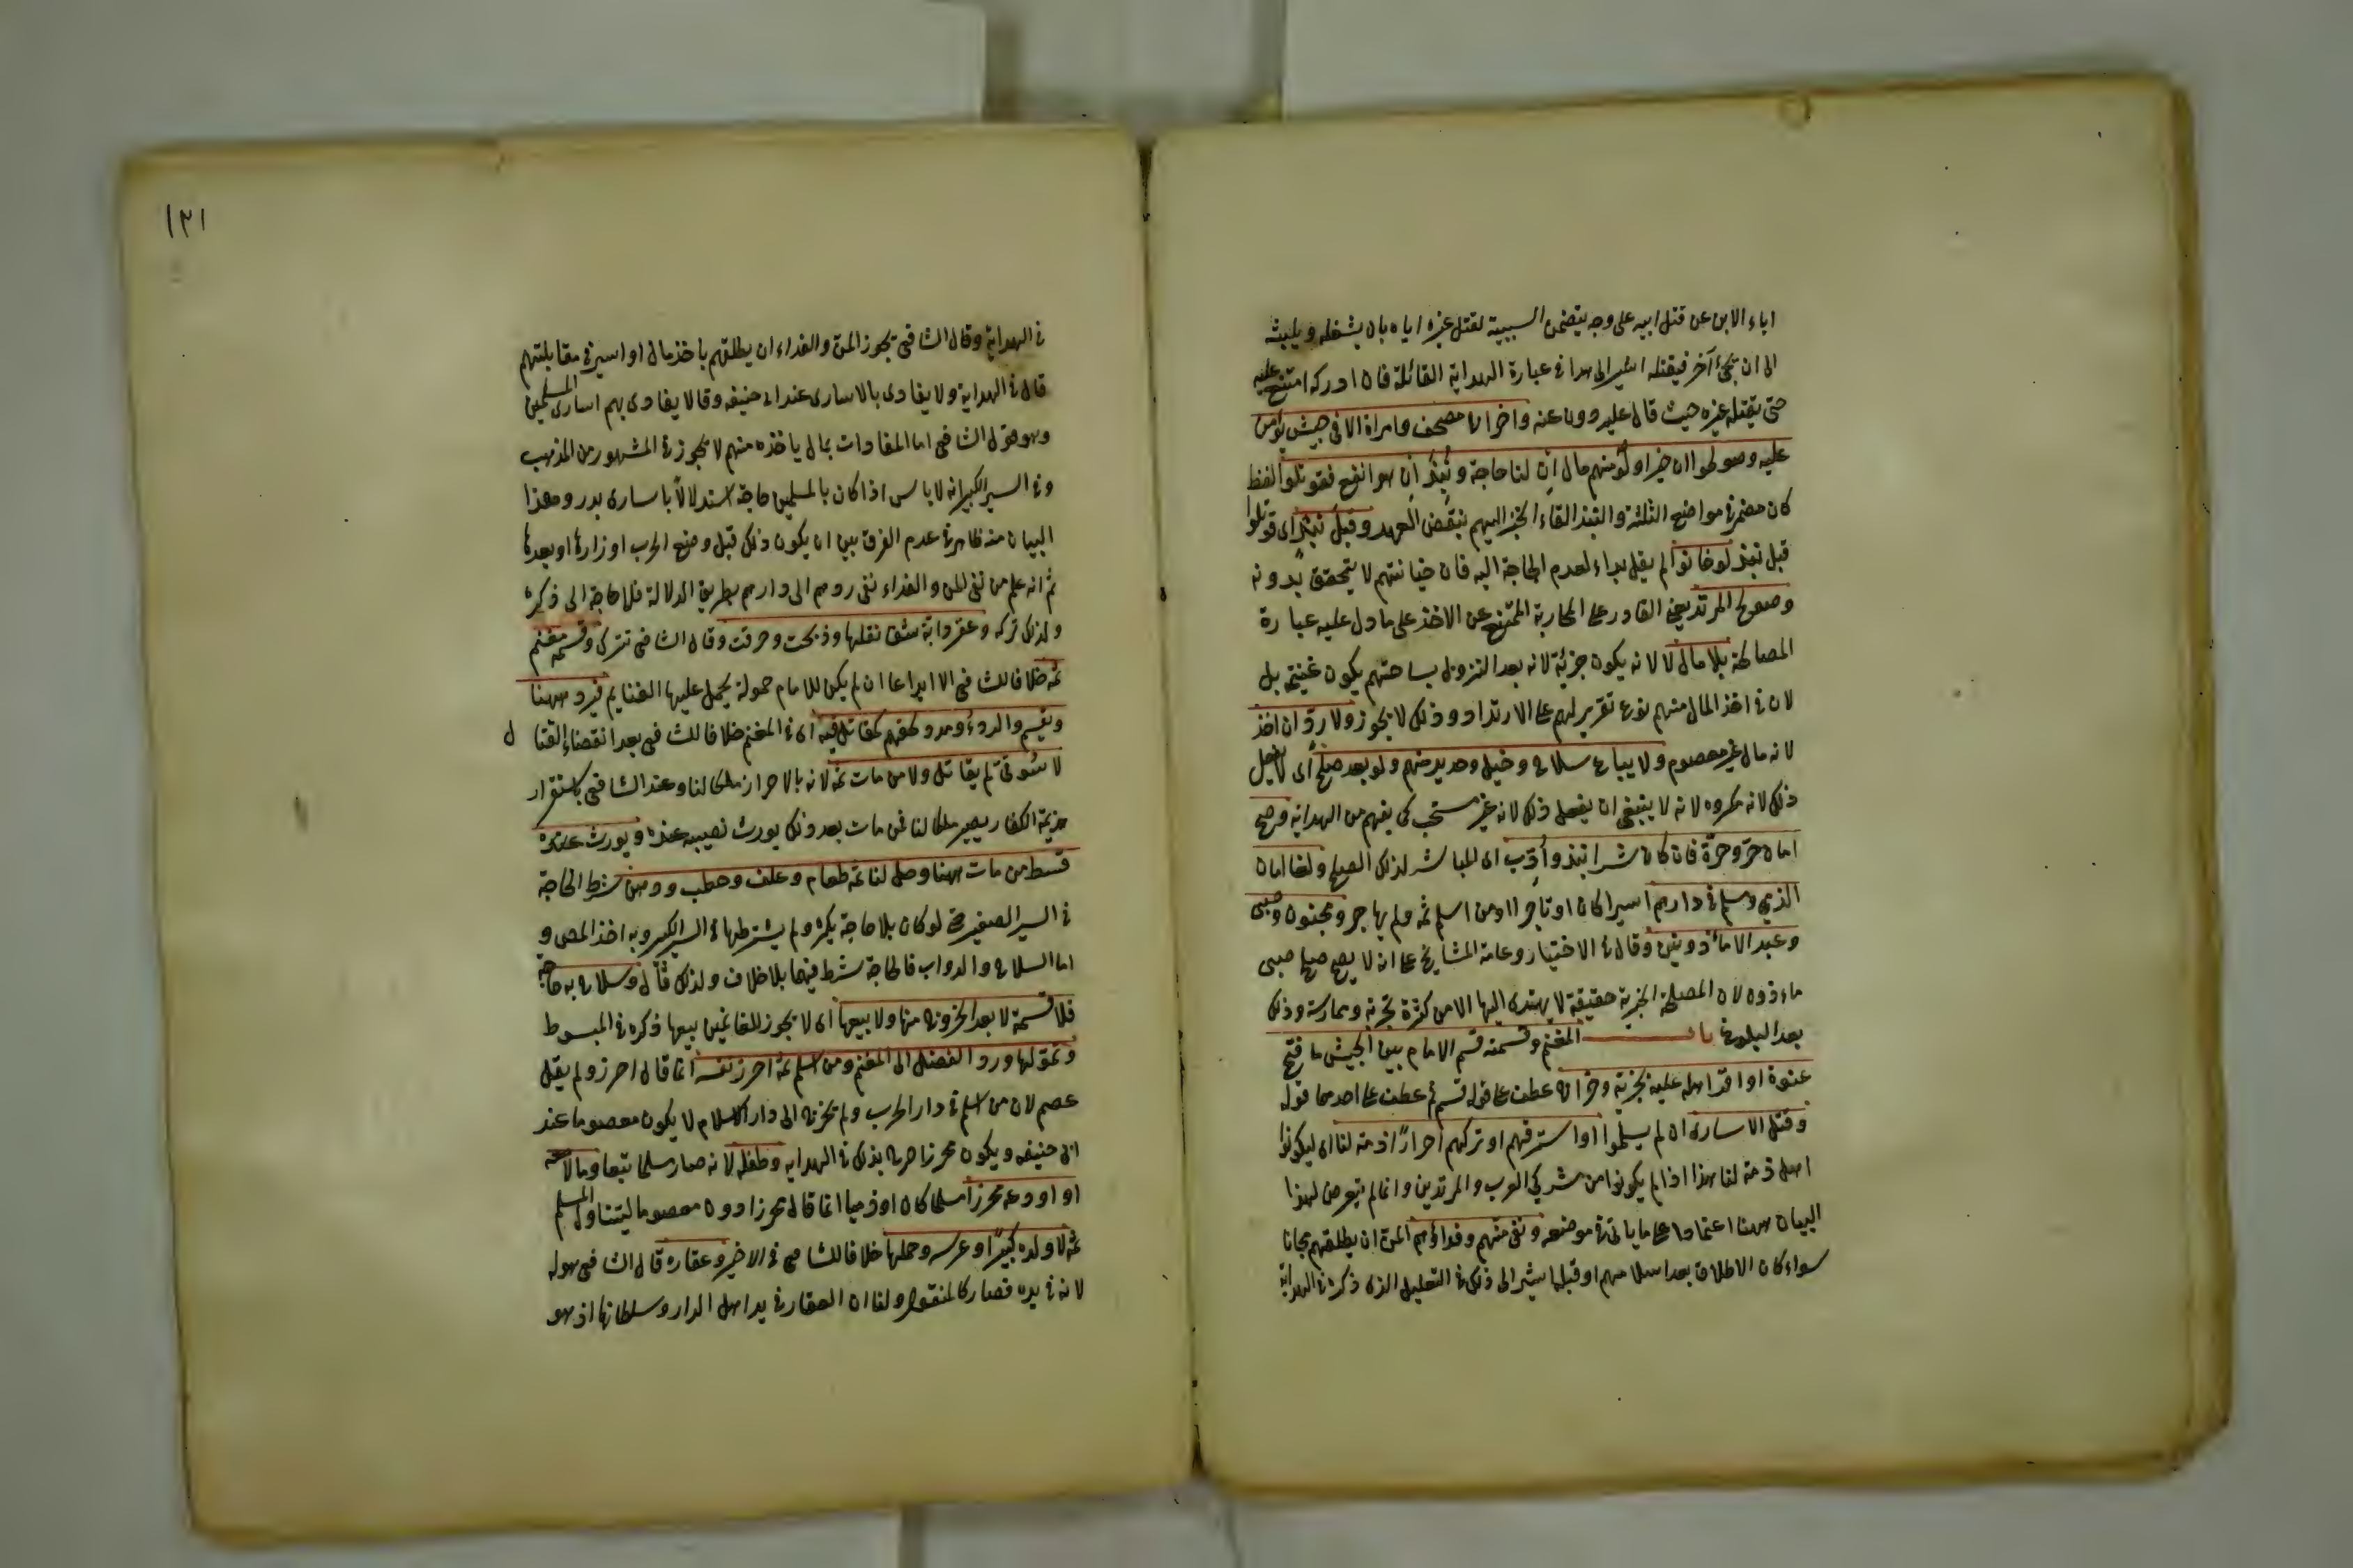 اباء الابن عن قتل ابيه على وجه يتضمن السببية لقتل غيره اياه بان يشغله ويلبثه
الى ان يجئ آخر فيقتله اشير الى هذا في عبارة الهداية القائلة فان ادركه امتنع عليه
حتى يقتله غيره حيث قال عليه دون عنه واخراج مصحف وامراة الا في جيش يؤمن
عليه وصولحوا ان خيرا ولو منهم مال ان لنا حاجة ونبذ ان هو انفع فقوتلوا لفظ
كان مضمر في مواضع الثلثة والنبذ القاء الخبر اليهم بنقض العهد وقبل نبذ اى قوتلوا
قبل نبذ لو خانوا لم يقل بداء لعدم الحاجة اليه فان خيانتهم لا يتحقق بدونه
وصولح المرتد يعني القادر على المحاربة الممتنع عن الاخذ على ما دل عليه عبارة
المصالحة بلا مال لا لانه يكون جزية لانه بعد النزول بساحتهم يكون غنيمة بل
لان في اخذ المال منهم نوع تقرير لهم على الارتداد وذلك لا يجوز ولا رد ان اخذ
لانه مال غير معصوم ولا يباع سلاح وخيل وحديد منهم ولو بعد صلح اى لا يفعل
ذلك لانه مكروه لانه لا ينبغي ان يفعل ذلك لانه غير مستحب كى يفهم من الهداية وصح
امان حر وحرة فان كان شرا نبذ وأدب اى المباشر لذلك الصلح ولغا امان
الذمي ومسلم في دارهم اسيرا كان او تاجرا او من اسلم ثمه ولم يهاجر ومجنون وصبى
وعبد الا مأذونين وقال في الاختيار وعامة المشايخ على انه لا يصح صلح صبى
ماءذون لان المصلحة الخيرية حقيقة لا يهتدى اليها الا من كثرة تجربة وممارسة وذلك
بعد البلوغ باب المغنم وقسمته قسم الامام بين الجيش ما فتح
عنوة او اقر اهله عليه بجزية وخراج عطف على قوله قسم ثم عطف على احدهما قوله
وقتل الاسارى ان لم يسلموا او استرقهم او تركهم احرارا ذمة لنا اى ليكونوا
اهل ذمة لنا هذا اذا لم يكونوا من مشركى العرب والمرتدين وانما لم يتعرض لهذا
البيان ههنا اعتمادا على ما ياتى في موضعه ونفى منهم وفداؤهم المن ان يطلقهم مجانا
سواء كان الاطلاق بعد اسلامهم او قبله اشير الى ذلك في التعليل الذى ذكره في الهداية
١٢١
في الهداية وقال الشافعى يجوز المن والفداء ان يطلقهم باخذ مال او اسير في مقابلتهم
قال في الهداية ولا يفادى بالاسارى عند ابى حنيفه وقالا يفادى بهم اسارى المسلمين
وهو قول الشافعى اما المفادات بمال ياخذه منهم لا تجوز في المشهور من المذهب
وفي السير الكبير انه لا باس اذا كان بالمسلمين حاجة استدلالا باسارى بدر وهذا
البيان منه ظاهر في عدم الفرق بين ان يكون ذلك قبل وضع الحرب اوزارها او بعدها
ثم انه علم من نفى المن والفداء نفى ردهم الى دارهم بطريق الدلالة فلا حاجة الى ذكره
ولذلك تركه وعقر دابة شق نقلها وذبحت وحرقت وقال الشافعى تترك وقسمة مغنم
ثمه خلافا للشافعى الا ايداعا ان لم يكن للامام حمولة يحمل عليها الغنايم فيرد ههنا
ويقسم والردء ومدد لحقهم كمقاتل فيه اى في المغنم خلافا للشافعى بعد انقضاء القتال
لا سوقى لم يقاتل ولا من مات ثمه لانه بالاحراز ملكا لنا وعند الشافعى باستقرار
هزيمة الكفار يصير ملكا لنا فمن مات بعد ذلك يورث نصيبه عنده ويورث عندنا
قسط من مات ههنا وحل لنا ثمه طعام وعلف وحطب ودهن شرط الحاجة
في السير الصغير حتى لو كان بلا حاجة يكره ولم يشترطها في السير الكبير وبه اخذ المص و
اما السلاح والدواب فالحاجة شرط فيهما بلا خلاف ولذلك قال وسلاح به حاجة
فلا قسمة لا بعد الخروج منها ولا بيعها اى لا يجوز للغانمين بيعها ذكره في المبسوط
وتمولها ورد الفضل الى المغنم ومن اسلم ثمه احرز نفسه انما قال احرز ولم يقل
عصم لان من اسلم في دار الحرب ولم يخرج الى دار الاسلام لا يكون معصوما عند
ابى حنيفه ويكون محرزا صرح بذلك في الهدايه وطفله لانه صار مسلما تبعا ومالا معه
او اودعه محرزا مسلما كان او ذميا انما قال محرزا دون معصوما ليتناول المسلم
ثمه لا ولده كبيرا وعرسه وحملها خلافا للشافعى في الاخير وعقاره قال الشافعى هو له
لانه في يده فصار كالمنقول ولنا ان العقار في يد اهل الدار وسلطانها اذ هو